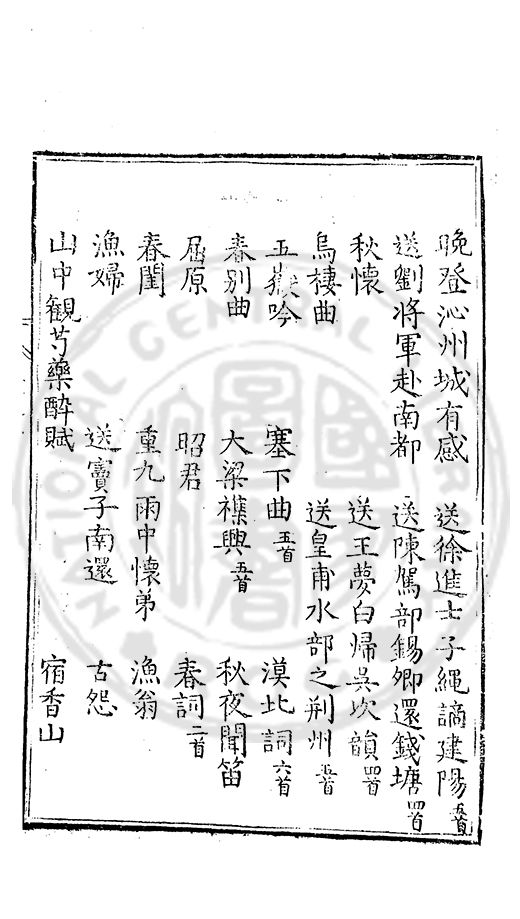 晚登沁州城有感　送徐進士子繩謫建陽五首
送劉將軍赴南都　送陳駕部錫卿還錢塘四首
秋懷　送王夢白歸吳次韻四首
烏棲曲　送皇甫水部之荆州五首
五嶽吟　塞下曲五首　漠北詞六首
春別曲　大梁襍興五首　秋夜聞笛
屈原　昭君　春詞二首
春閨　重九雨中懷弟　漁翁
漁婦　送竇子南還　古怨
山中觀芍藥醉賦　宿香山